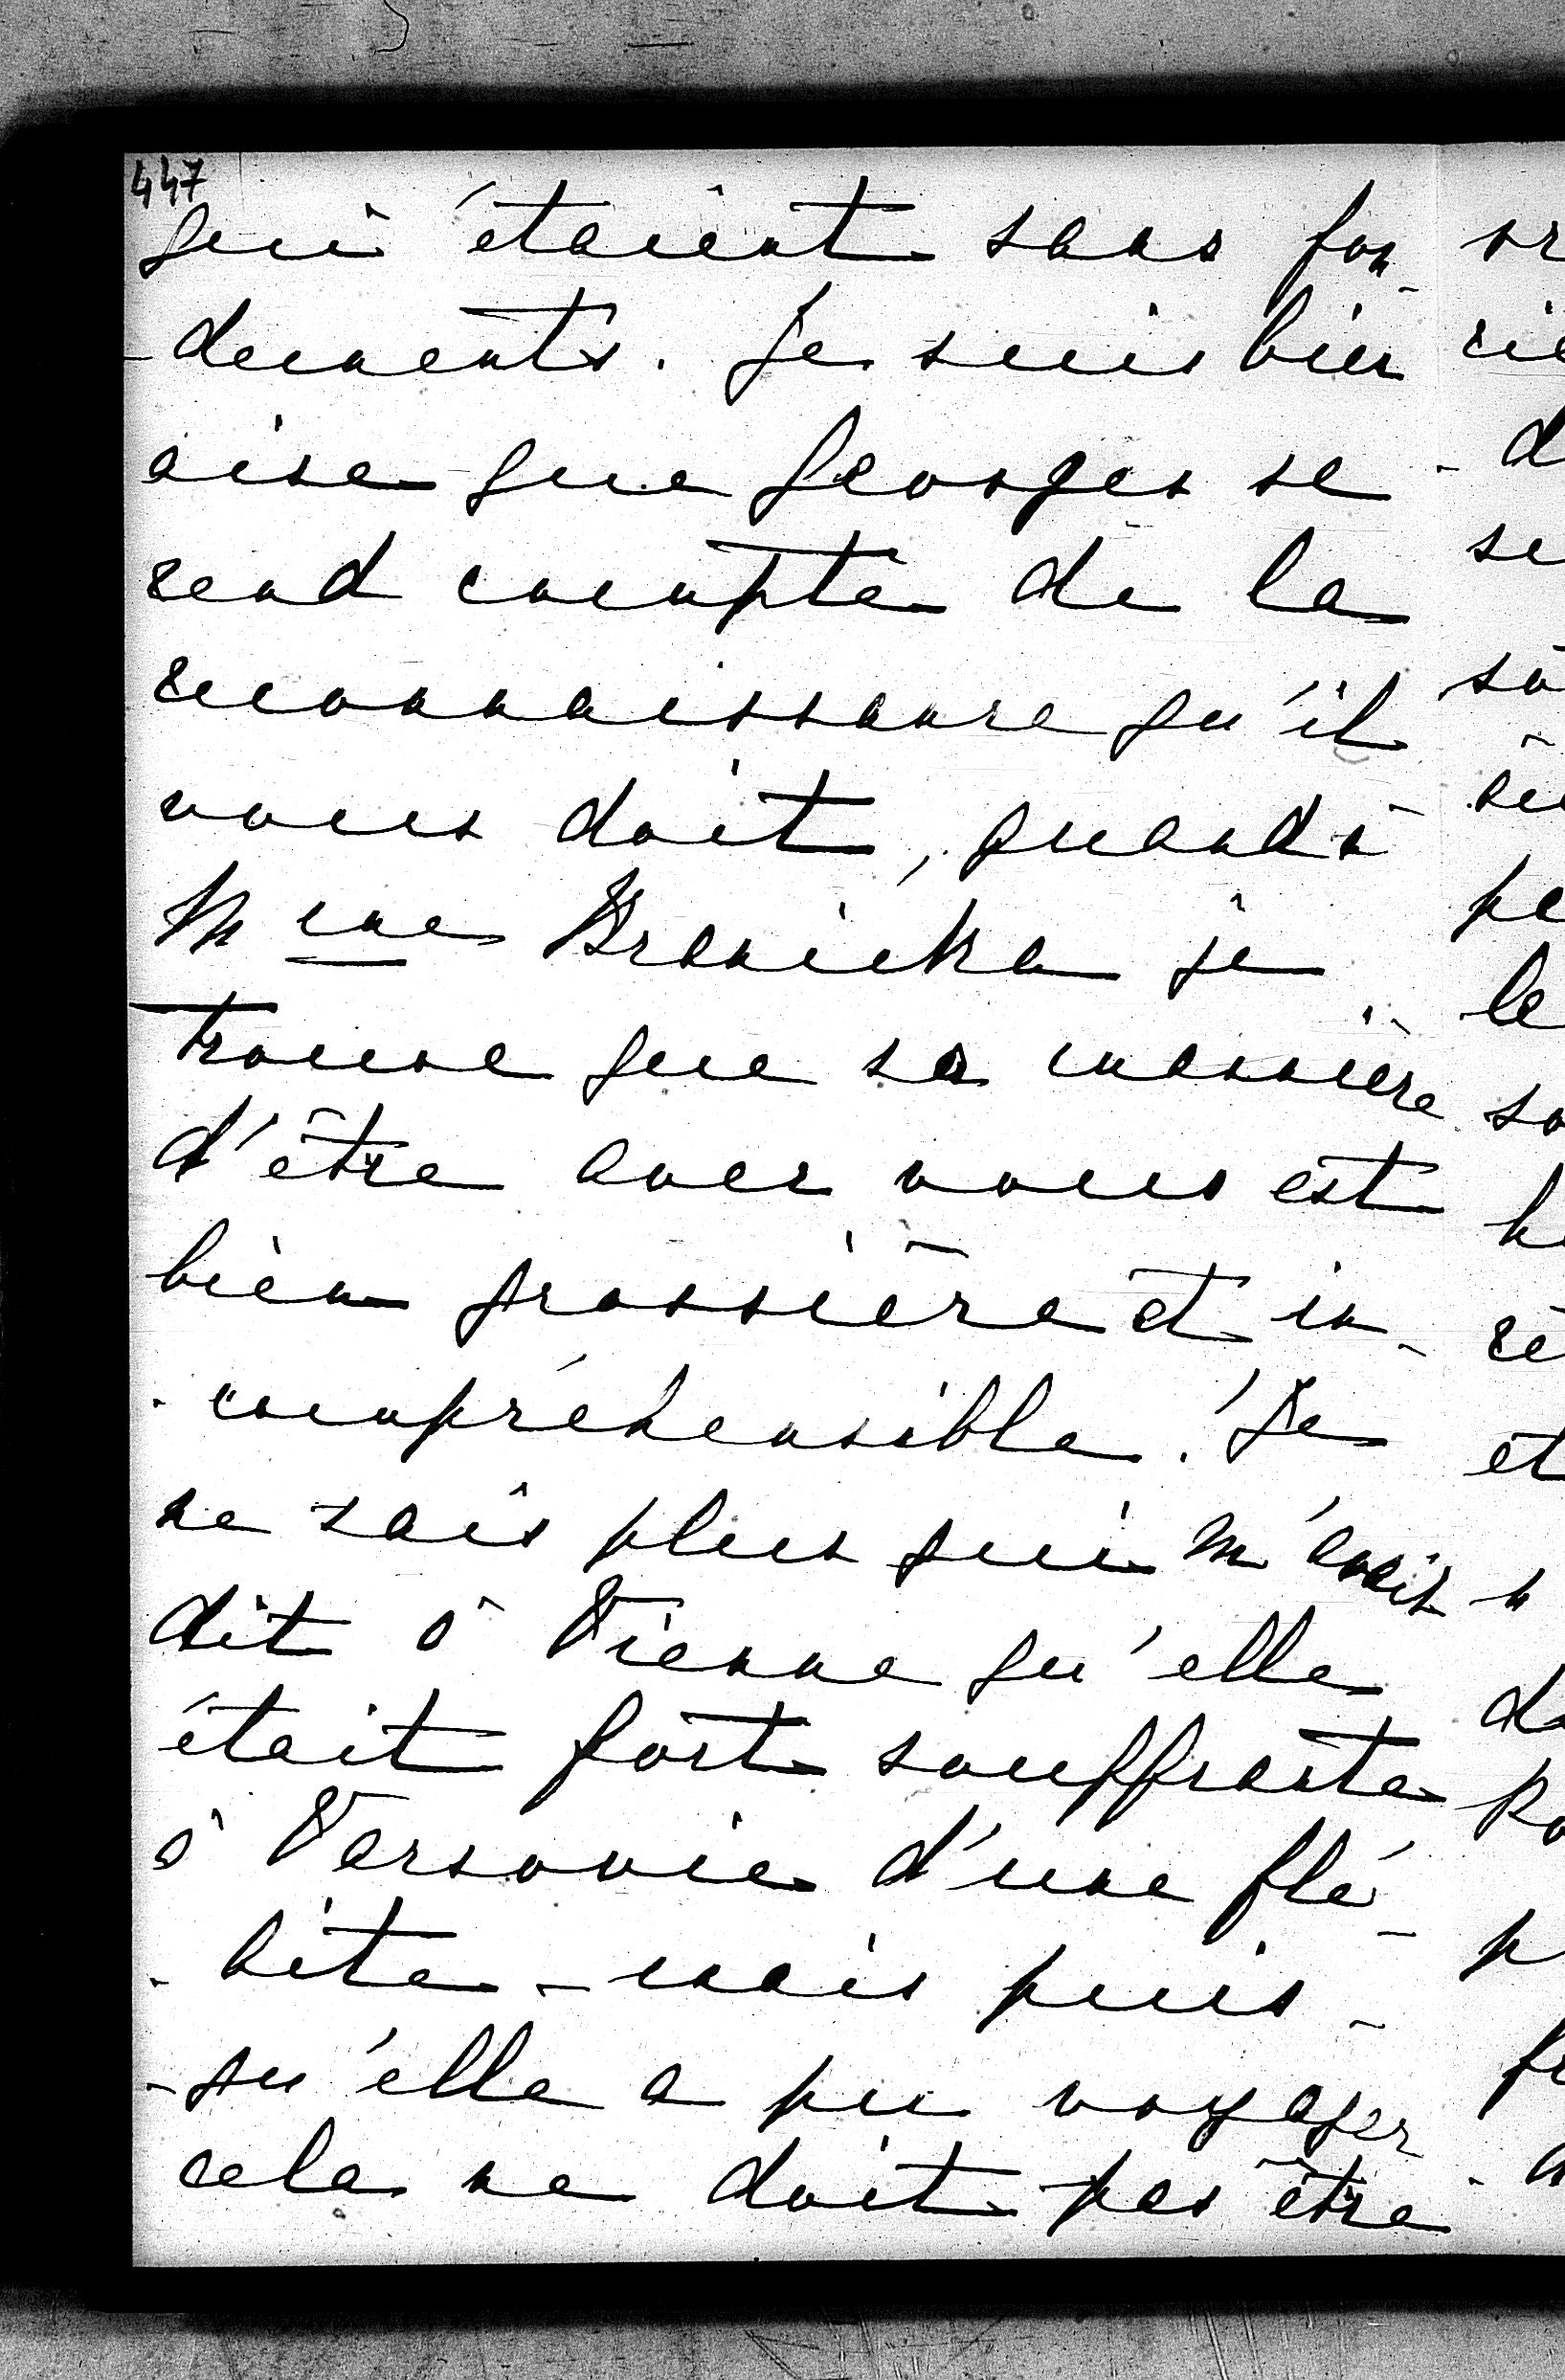 447
qui étaient sans fon-
-dements. Je suis bien
aise que Georges se
rend compte de la
reconnaissance qu'il
vous doit, quand à
Mme Branicka je
trouve que sa manière
d'être avec vous est
bien grossière et in-
-compréhensible. Je
ne sais plus qui m'avait
dit à Vienne qu'elle
était fort souffrante
à Varsovie d'une flé-
-bite - mais puis-
-qu'elle a pu voyager
cela ne doit pas être